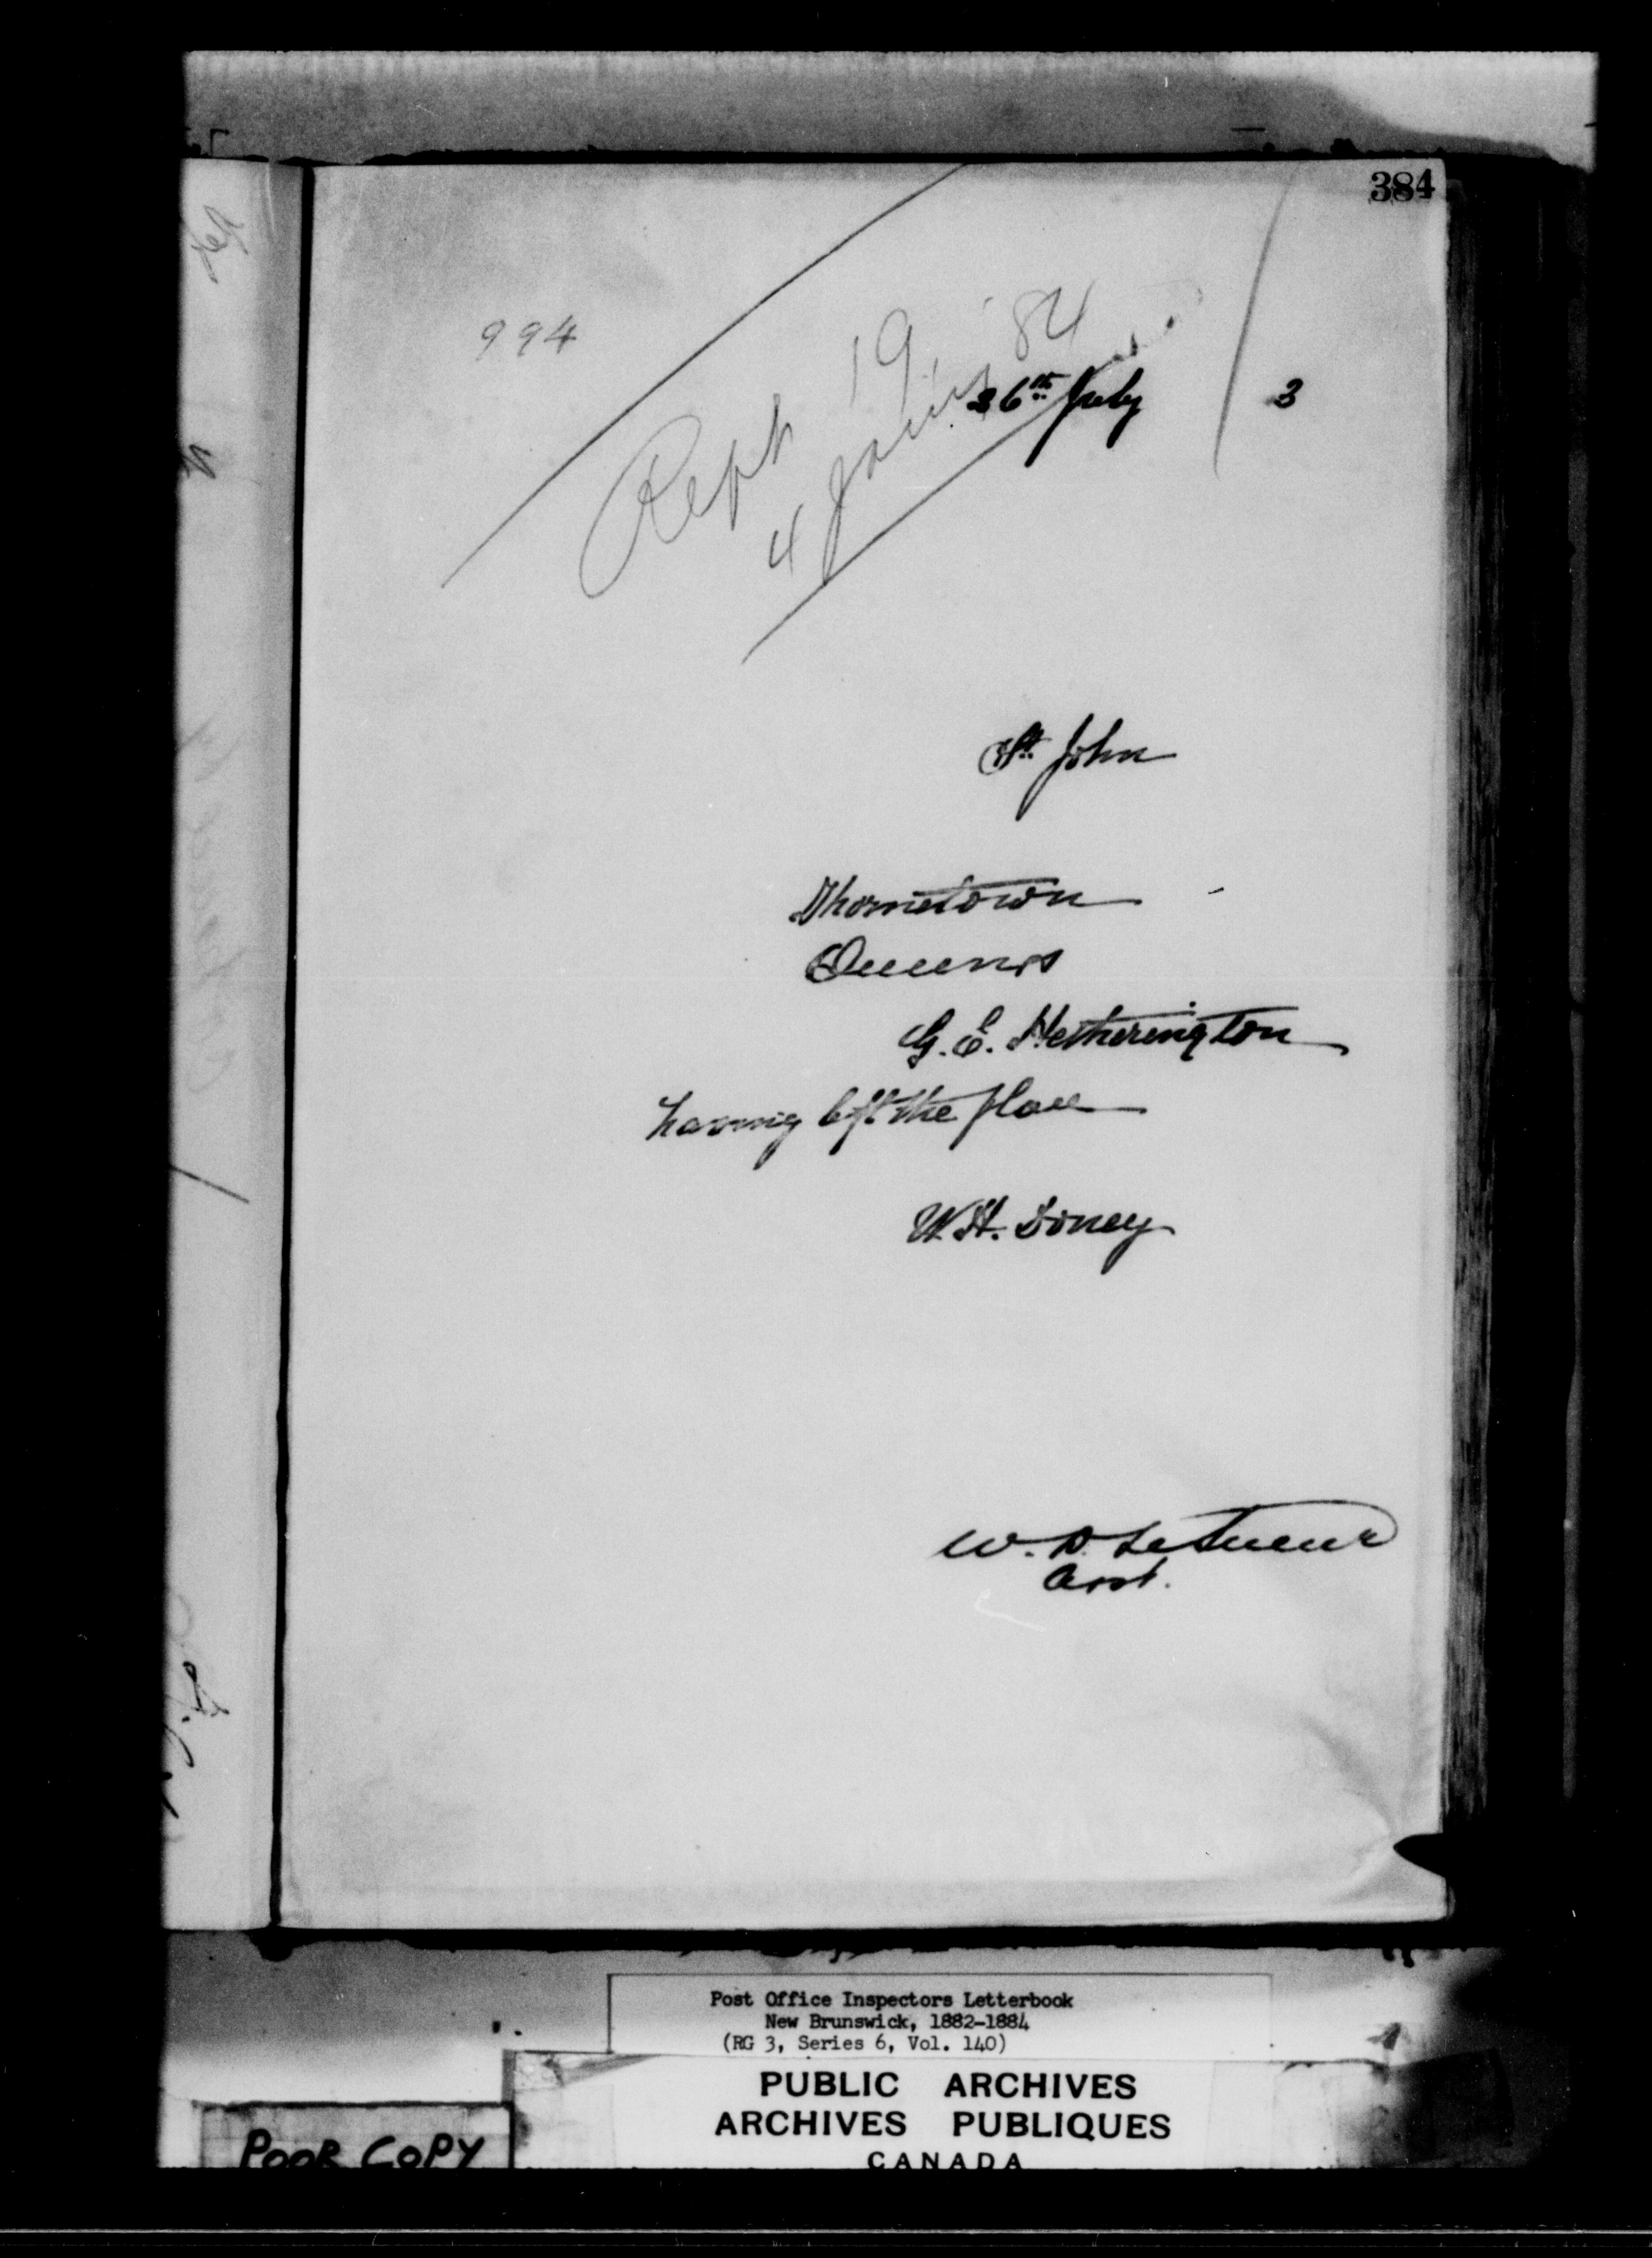 384
994
Rept 19 '84
4 Jany
26th July 3
St. John
Thornetown
Queens
G. E. Hetherington
having left the place
W. H. Doney
W. D. LeSueur
Asst.
Post Office Inspectors Letterbook
New Brunswick, 1882-1884
(RG 3, Series 6, Vol. 140)
PUBLIC ARCHIVES
ARCHIVES PUBLIQUES
CANADA
POOR COPY